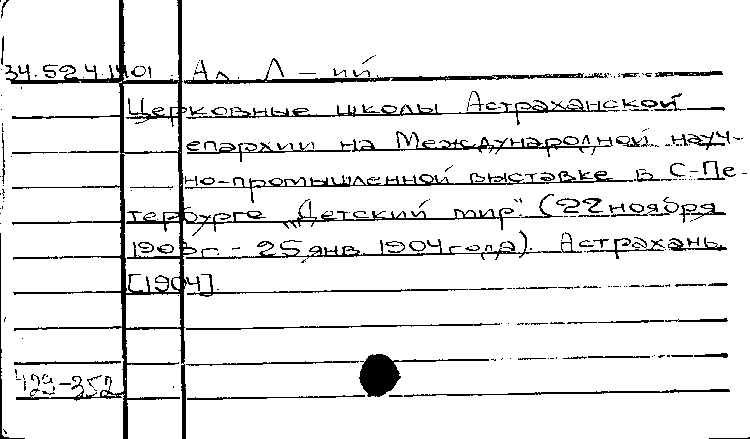 34.52 4.1401 Ал. Л – ий
Церковные школы Астраханской
епархии на Международной науч-
но-промышленной выставке в С-Пе-
тербурге „Детский мир". (22 ноября
1903г. - 25 янв. 1904 года). Астрахань
[1904].
429-352